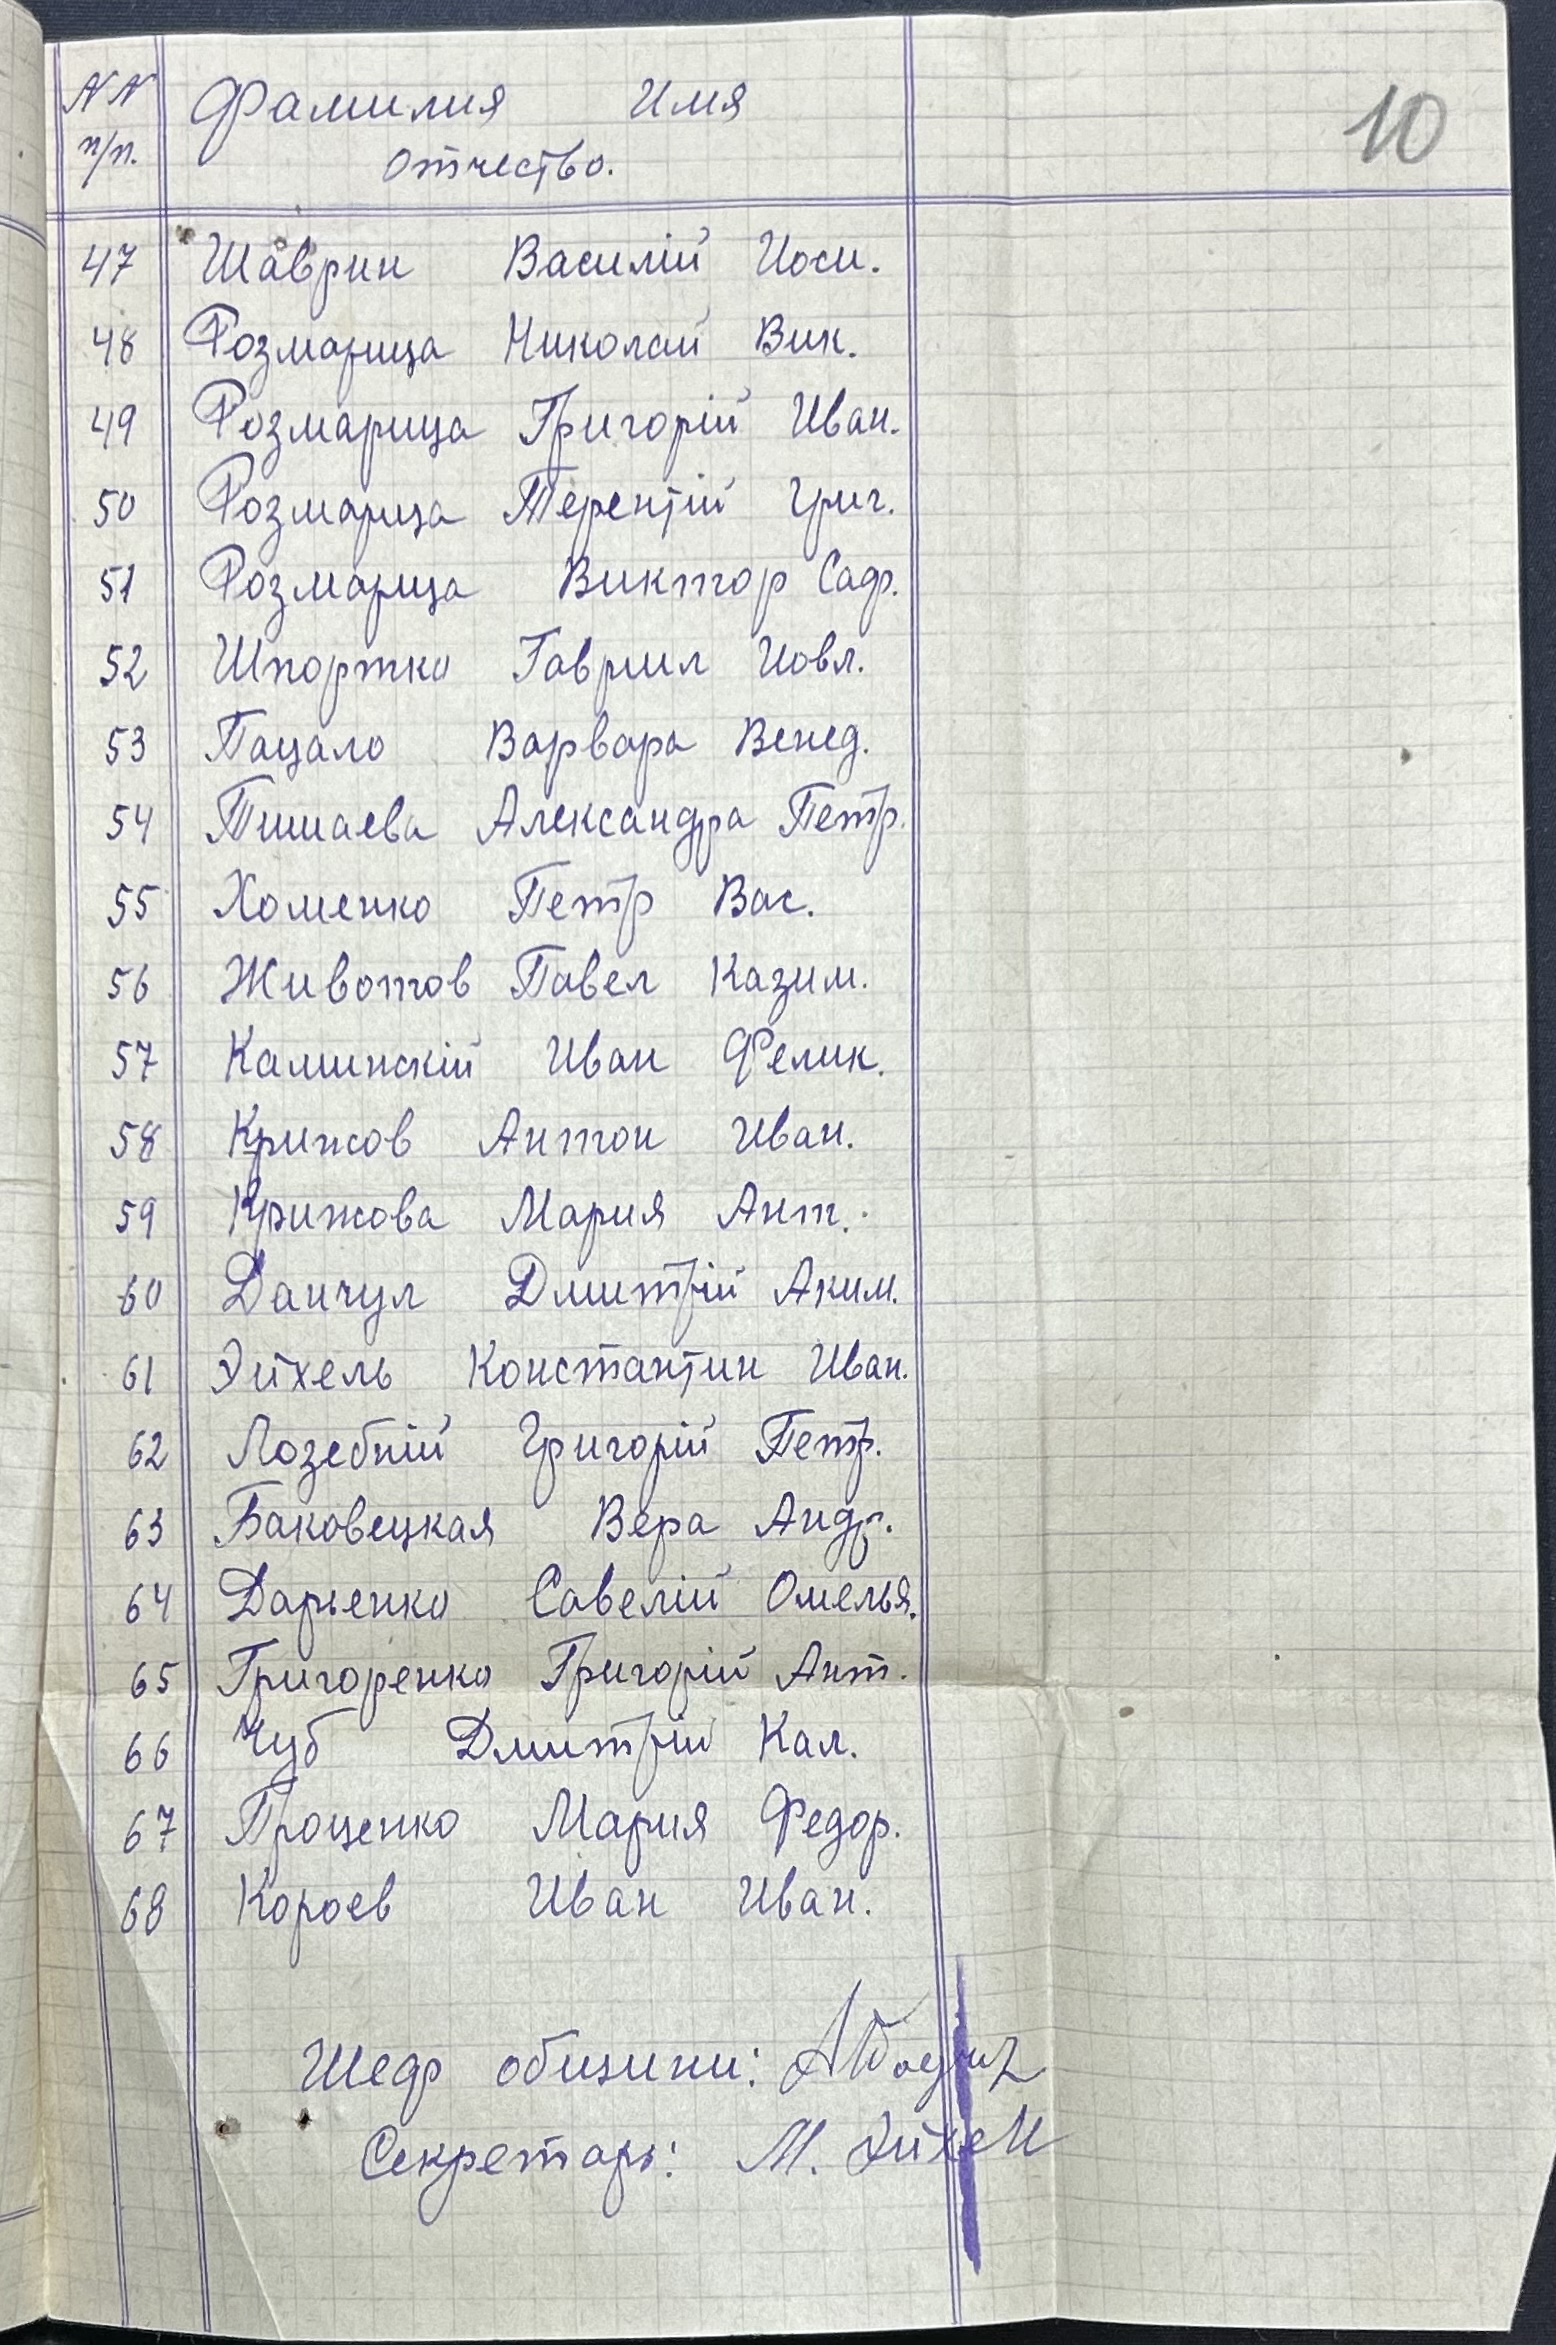 NN Фамилия Имя 10
п/п. отчество.
47 Шаврин Василій Иоси.
48 Розмарица Николай Вик.
49 Розмарица Григорій Иван.
50 Розмарица Терентій Григ.
51 Розмарица Виктор Саф.
52 Шпортко Гаврил Иовл.
53 Пацало Варвара Венед.
54 Александра Петр.
55 Хоменко Петр Вас.
56 Животов Павел Казим.
57 Каминскій Иван Фелик.
58 Крижов Антон Иван.
59 Крижова Мария Ант.
60 Данчул Дмитрій Аким.
61 Эйхель Константин Иван.
62 Лозебній Григорій Петр.
63 Баковецкая Вера Андр.
64 Дарьенко Савелій Омелья.
65 Григоренко Григорій Ант.
66 Чуб Дмитрій Кал.
67 Проценко Мария Федор.
68 Короев Иван Иван.
Шеф общини:
Секретарь: М. Эйхель